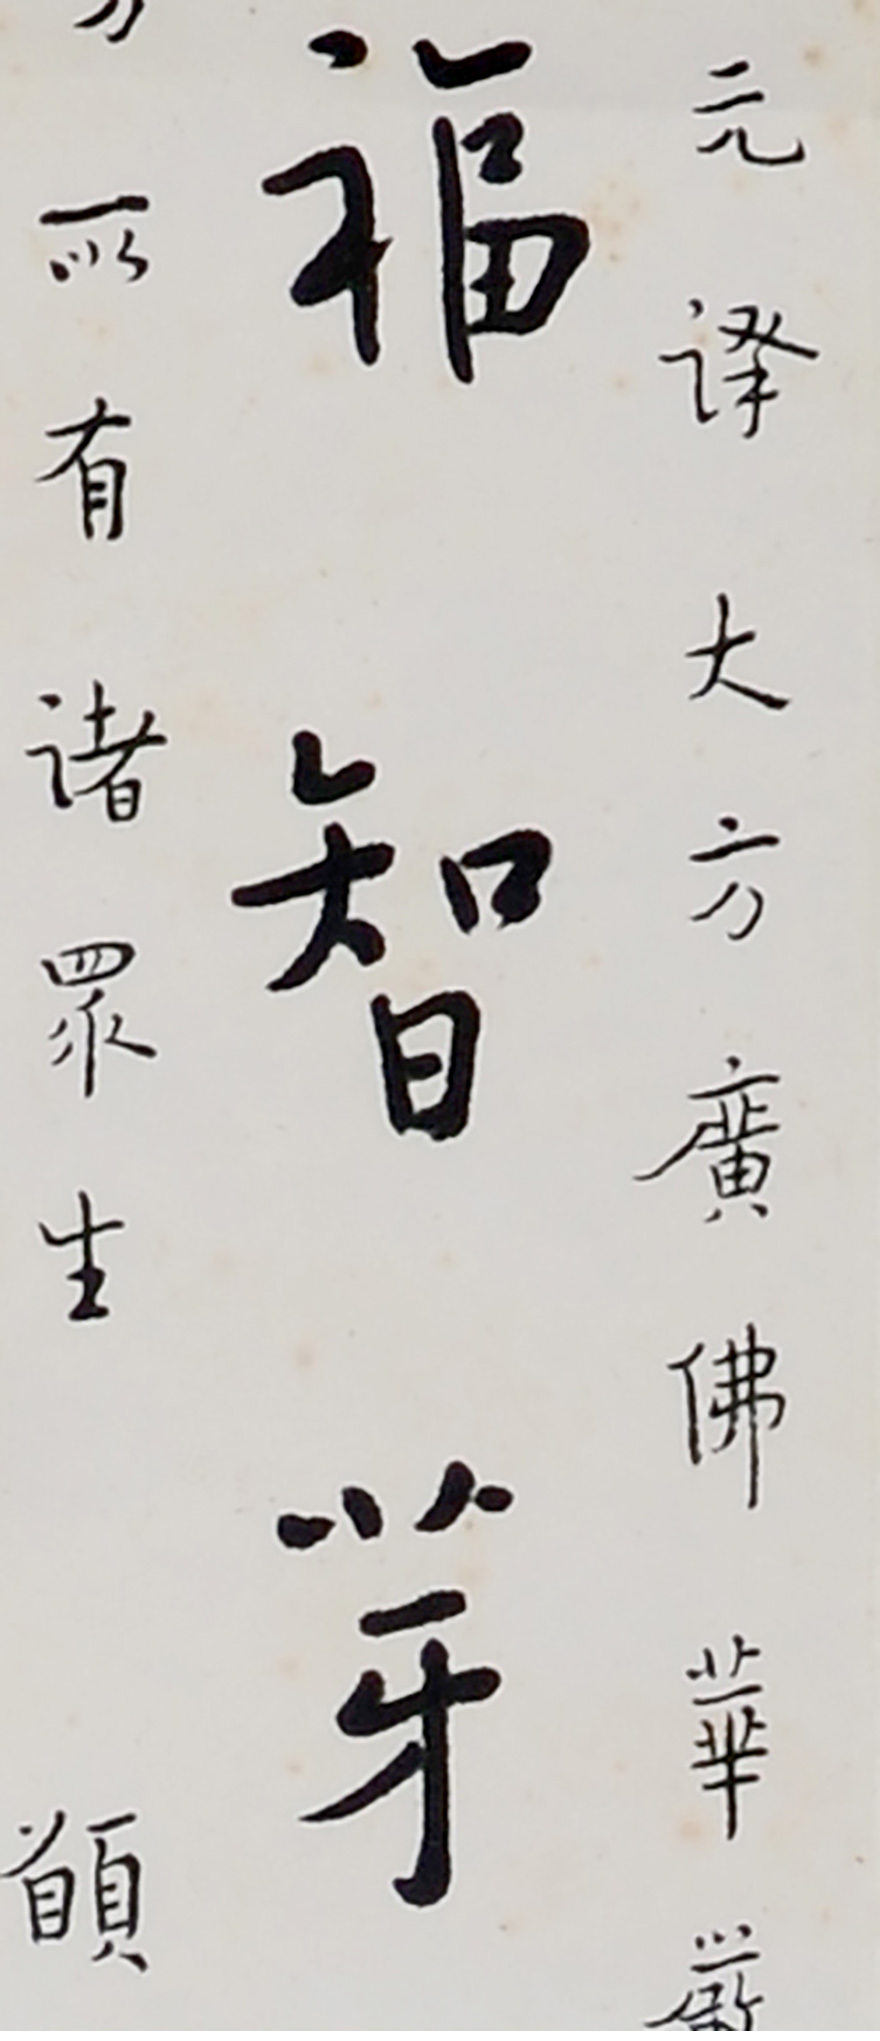 元譯大方廣佛華嚴
福智芽
所有諸眾生 願